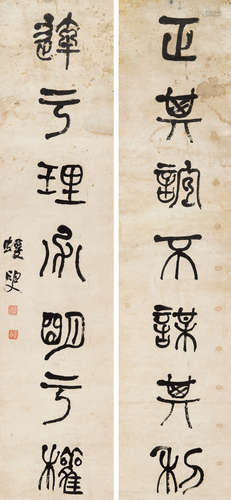 正其誼不謀其利
達于理必明于權
蝯叟